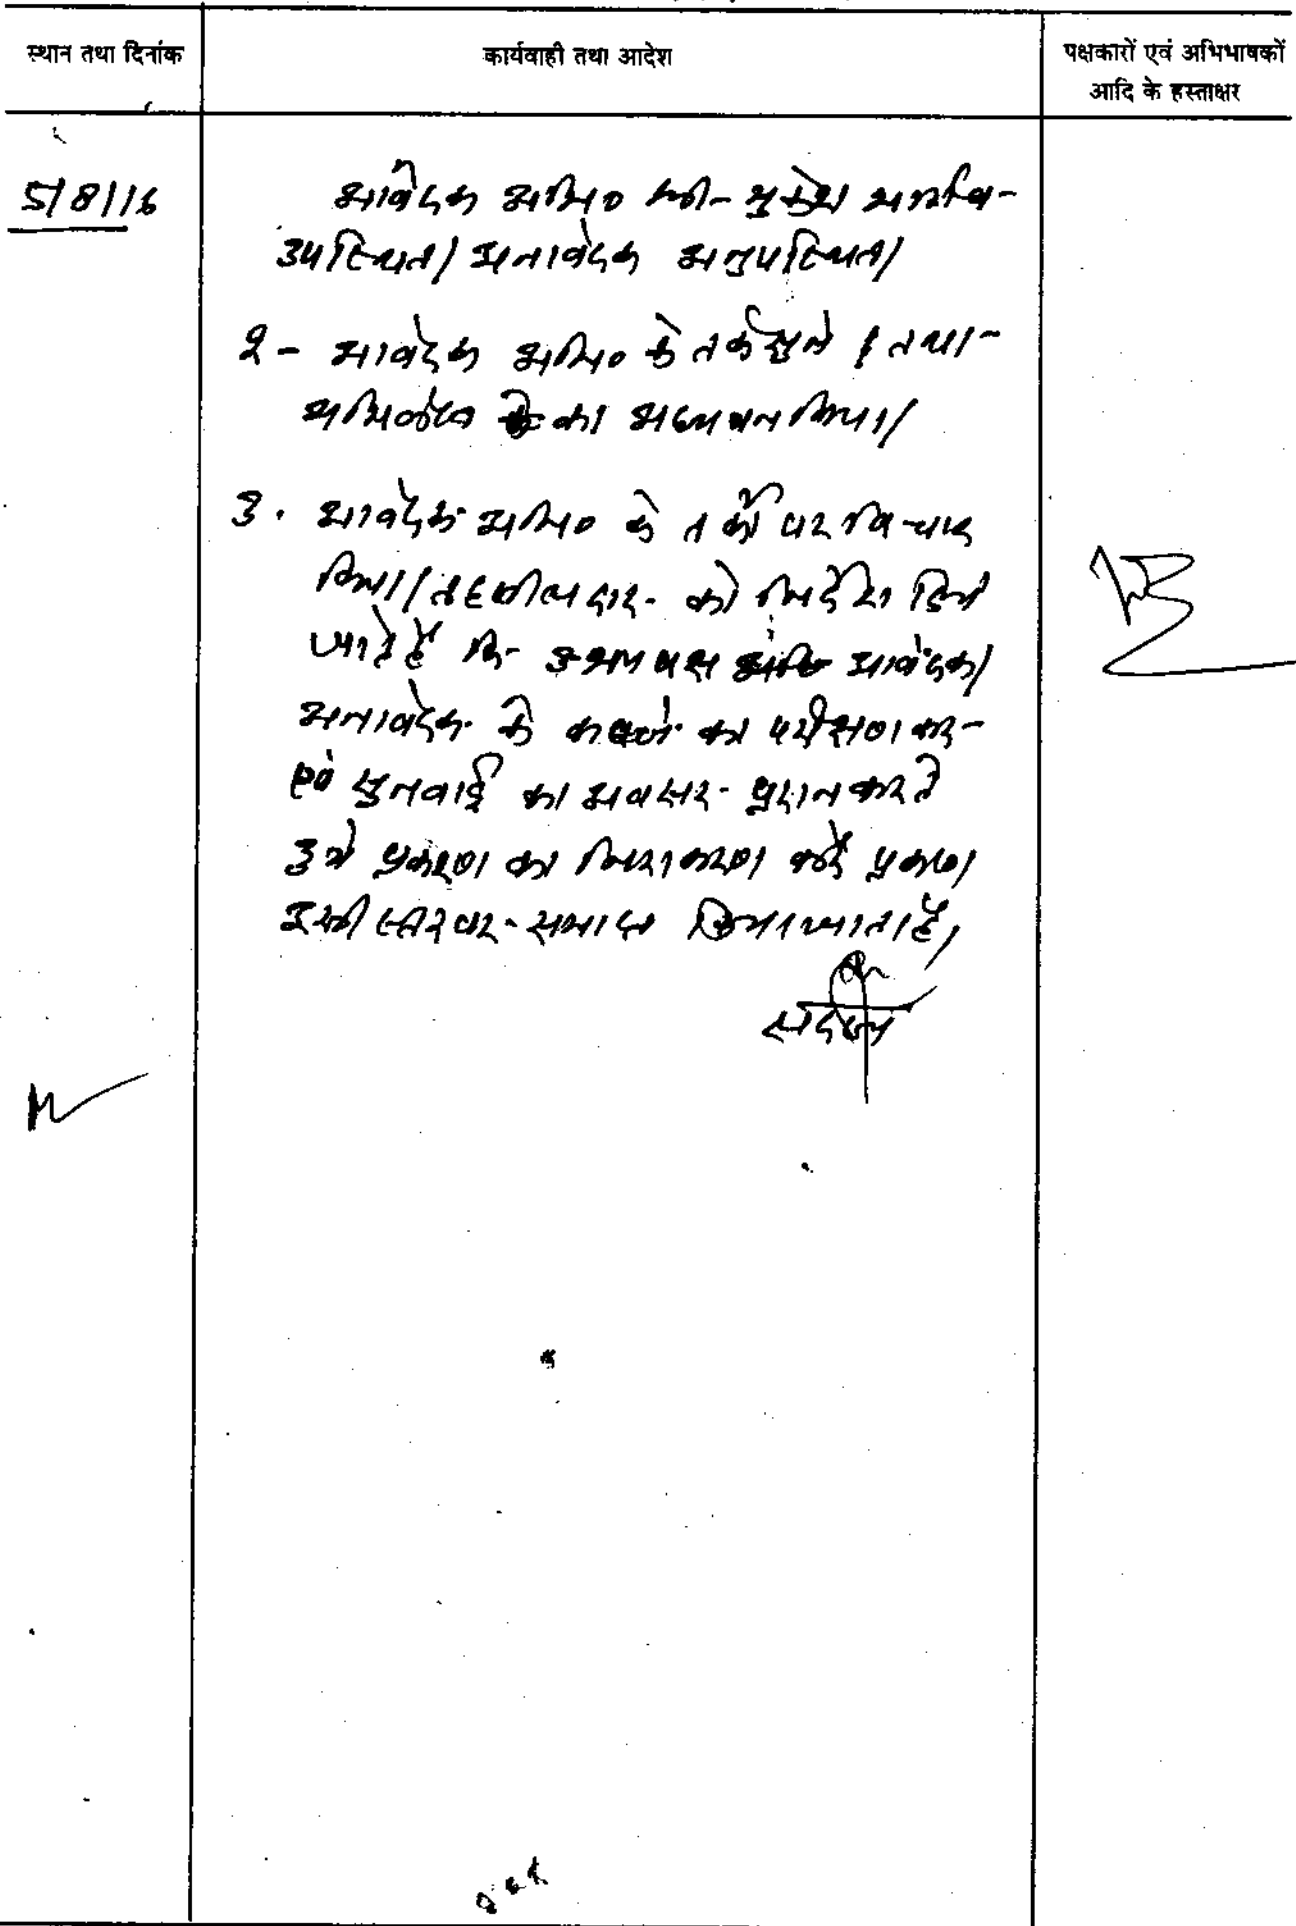 स्थान तथा दिनांक
कार्यवाही तथा आदेश
पक्षकारों एवं अभिभाषकों
आदि के हस्ताक्षर
5/8/16
आवेदक अभि० श्री- मुकेश
उपस्थित/ अनावेदक अनुपस्थित/
2- आवेदक अभि० के तर्क सुने । तथा-
अभिलेख का अध्ययन किया/
3. आवेदक अभि० के तर्कों पर विचार
किया/ तहसीलदार- को निर्देश दिये
जाते हैं कि- उभयपक्ष आवेदक/
अनावेदक के कथनों का परीक्षण कर-
एवं सुनवाई का अवसर- प्रदान करते
हुये प्रकरण का निराकरण करें प्रकरण
इसी स्तर पर- समाप्त किया जाता है,
सदस्य